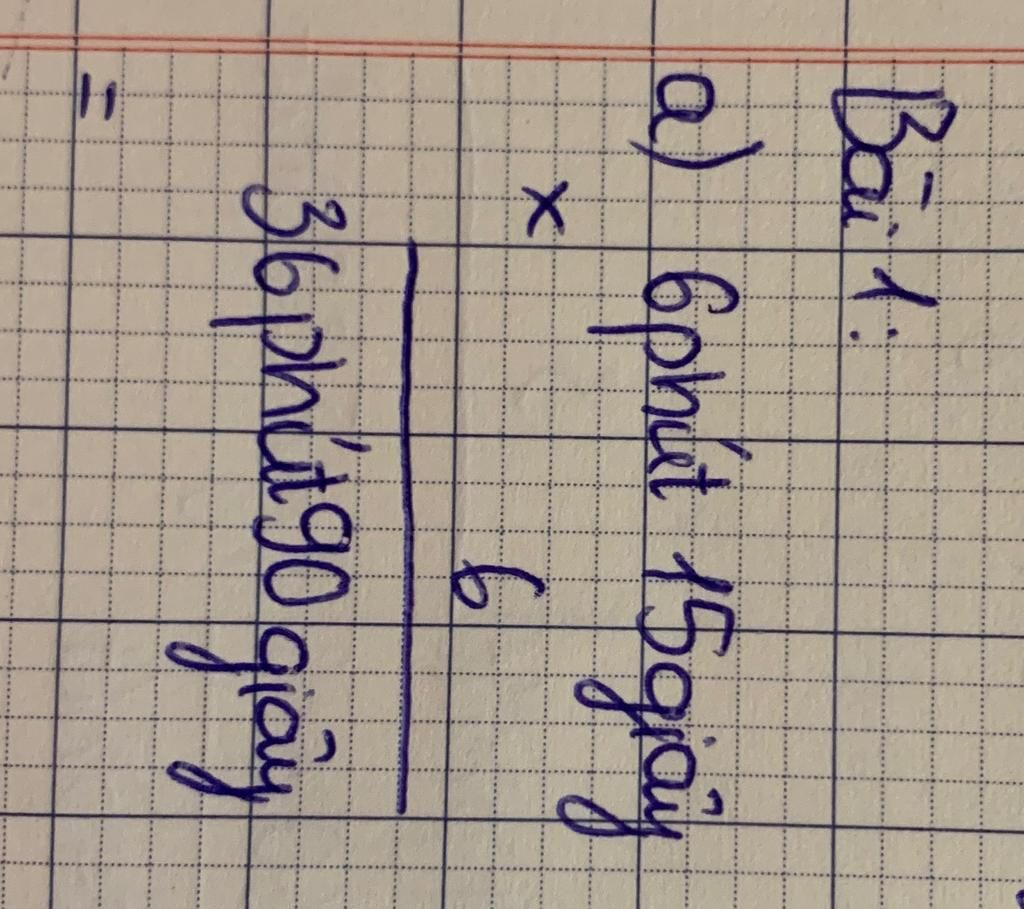 Bài 1:
a) 6 phút 15 giây
x
6
36 phút 90 giây
=